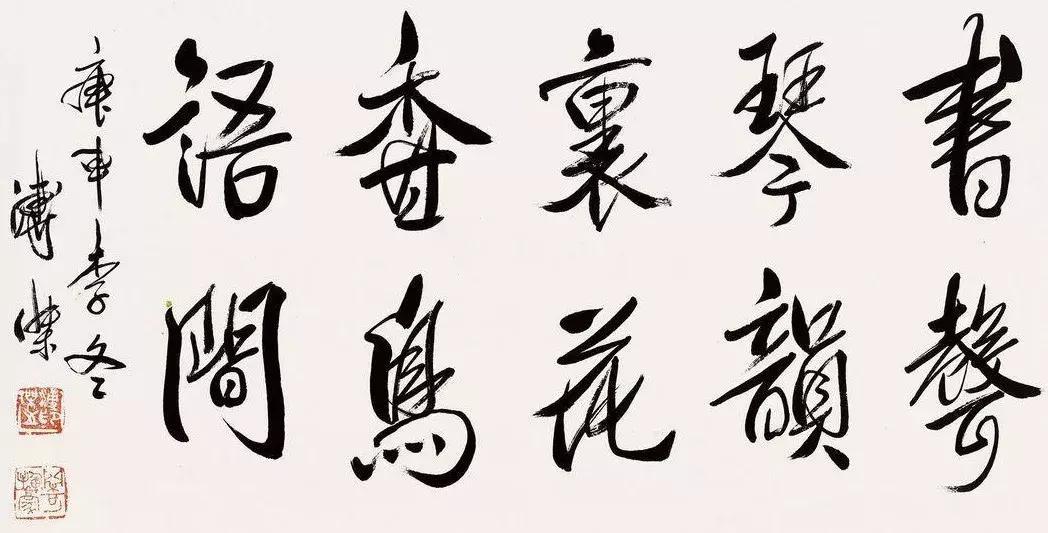 書聲
琴韻
裏花
香鳥
語間
庚申季冬
溥傑